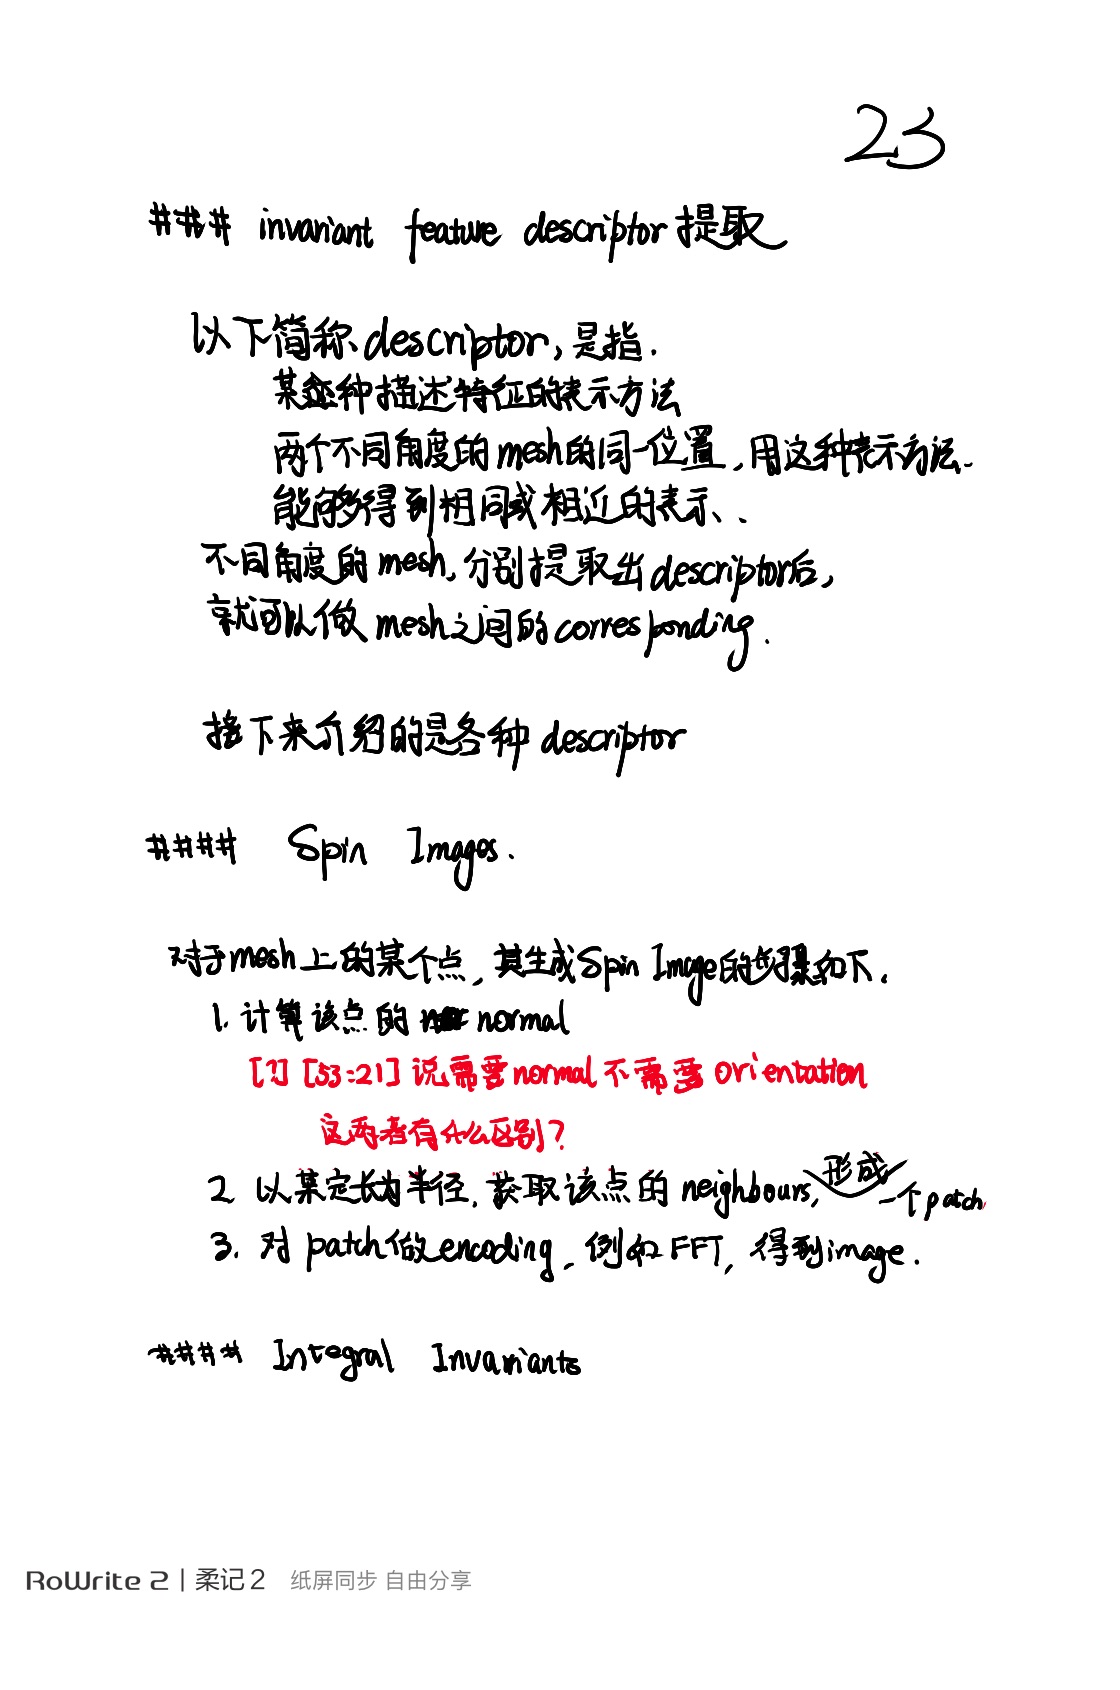 23
### invariant feature descriptor 提取
以下简称 descriptor, 是指.
某种描述特征的表示方法
两个不同角度的mesh的同一位置, 用这种表示方法.
能够得到相同或相近的表示、.
不同角度的 mesh, 分别提取出 descriptor后,
就可以做 mesh之间的 corresponding.
接下来介绍的是各种 descriptor
#### Spin Images.
对于mesh上的某个点, 其生成Spin Image的步骤如下.
1. 计算该点的 normal
[?] [53:21] 说需要normal不需要orientation
这两者有什么区别?
2 以某定长为半径, 获取该点的 neighbours, 形成一个patch
3. 对 patch做encoding, 例如FFT, 得到image.
#### Integral Invariants
RoWrite 2 | 柔记2 纸屏同步 自由分享